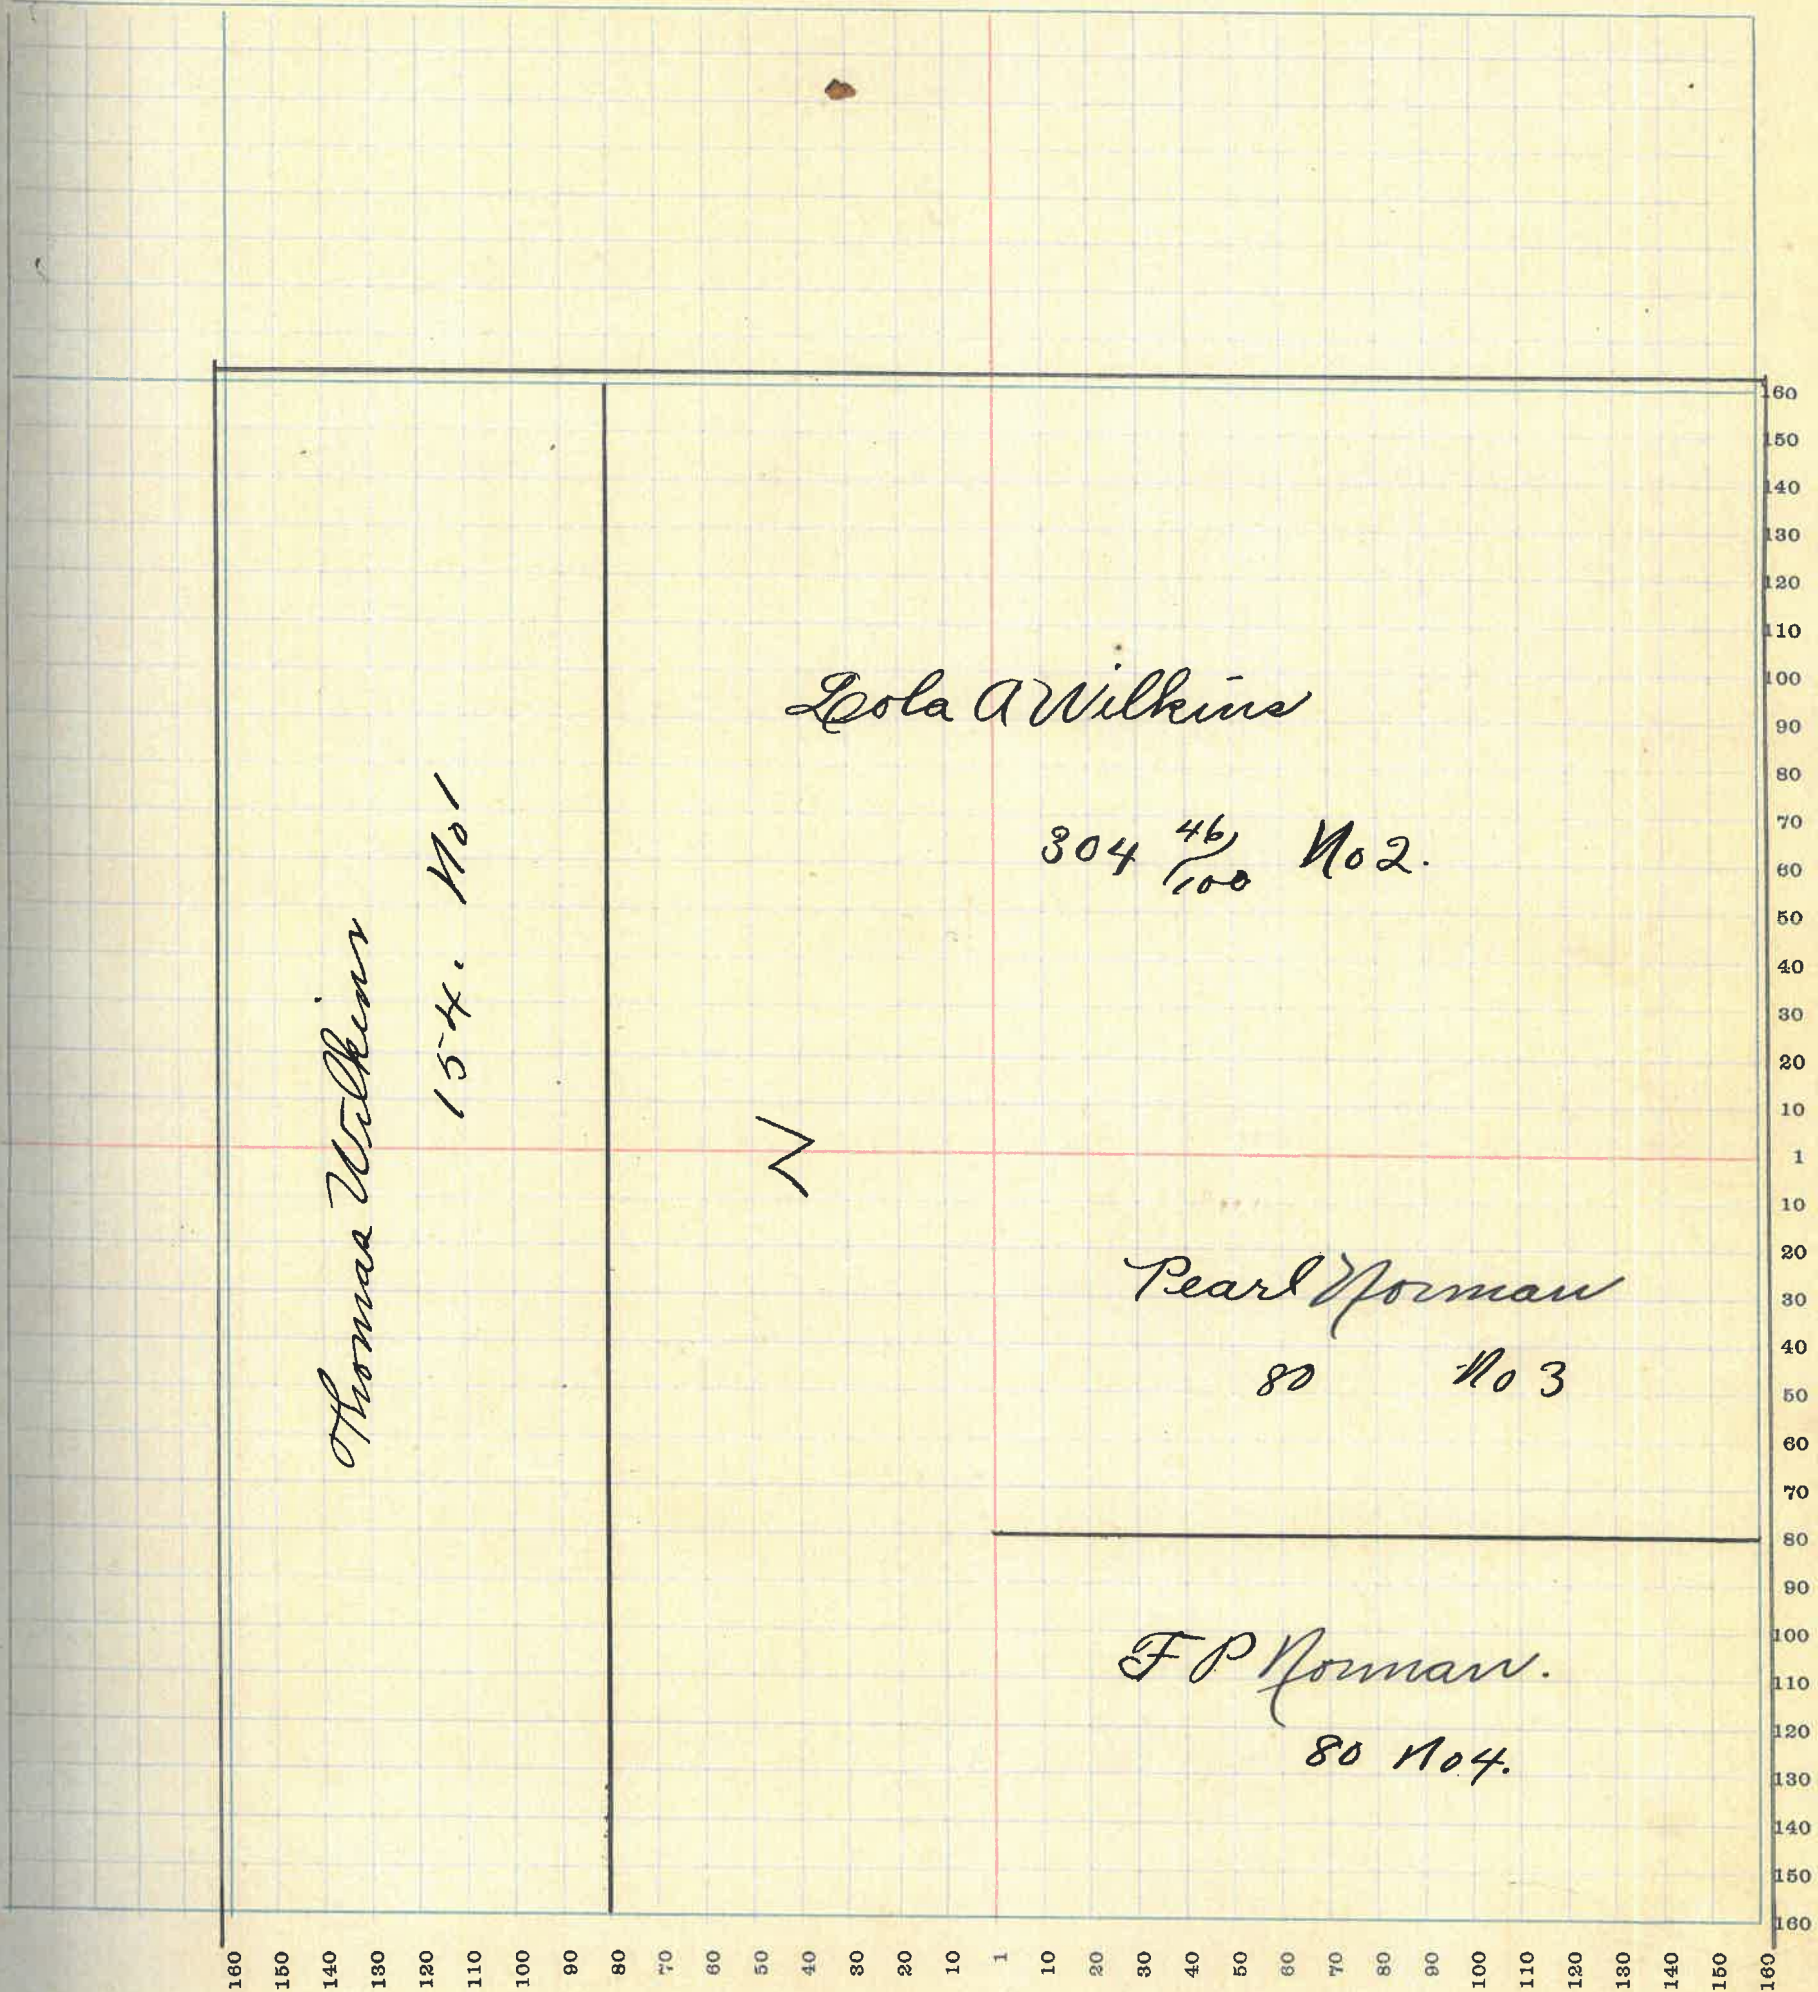 Thomas Wilkins
154. No 1
Lola A Wilkins
304 46/100 No 2.
Z
Pearl Norman
80 No 3
F P Norman.
80 No 4.
160
150
140
130
120
110
100
90
80
70
60
50
40
30
20
10
1
10
20
30
40
50
60
70
80
90
100
110
120
130
140
150
160
160 150 140 130 120 110 100 90 80 70 60 50 40 30 20 10 1 10 20 30 40 50 60 70 80 90 100 110 120 130 140 150 160